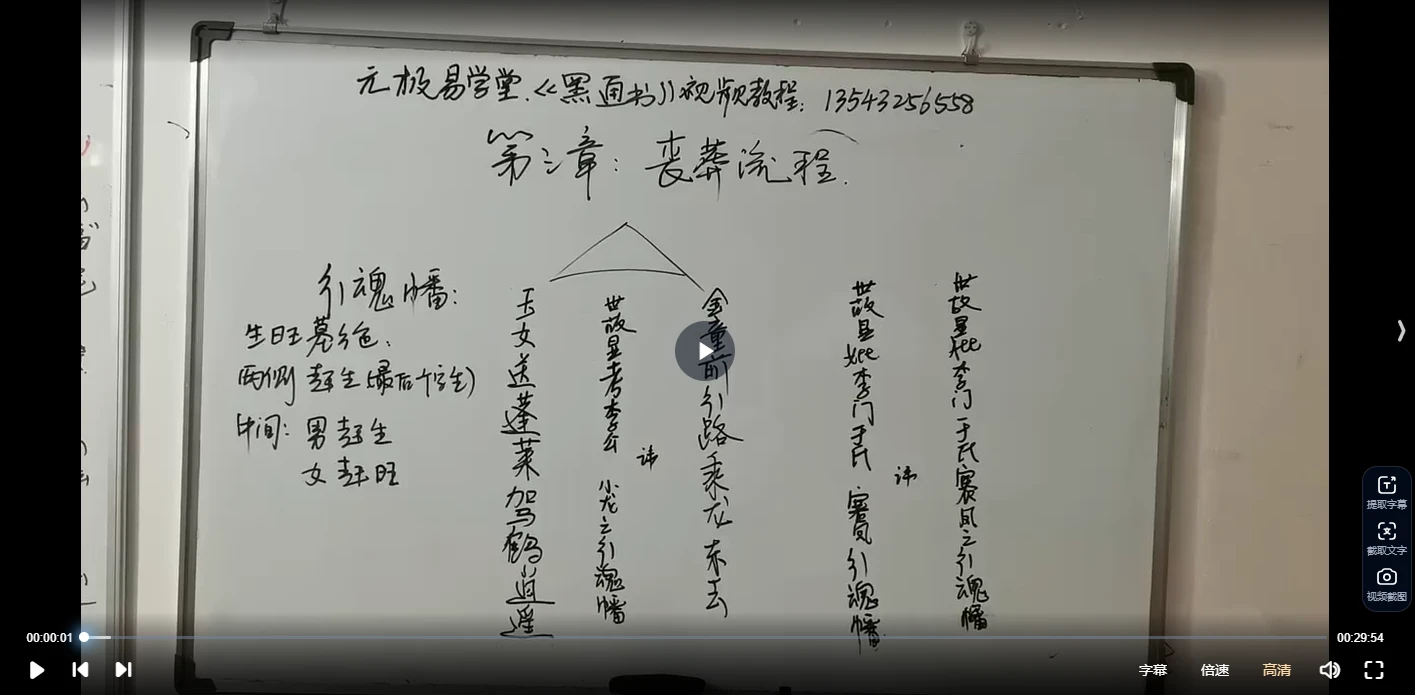 元极易学堂.《黑通书》视频教程: 13543256558
第三章: 丧葬流程.
引魂幡:
生旺墓绝.
两侧 起生(最后一字生)
中间: 男起生
女起旺
玉女送蓬莱驾鹤逍遥
世故显考李公 讳 小龙之引魂幡
金童前引路乘龙东去
世故显妣李门于氏 讳 赛凤引魂幡
世故显妣李门于氏赛凤之引魂幡
提取字幕
截取文字
视频截图
00:00:01
00:29:54
字幕
倍速
高清